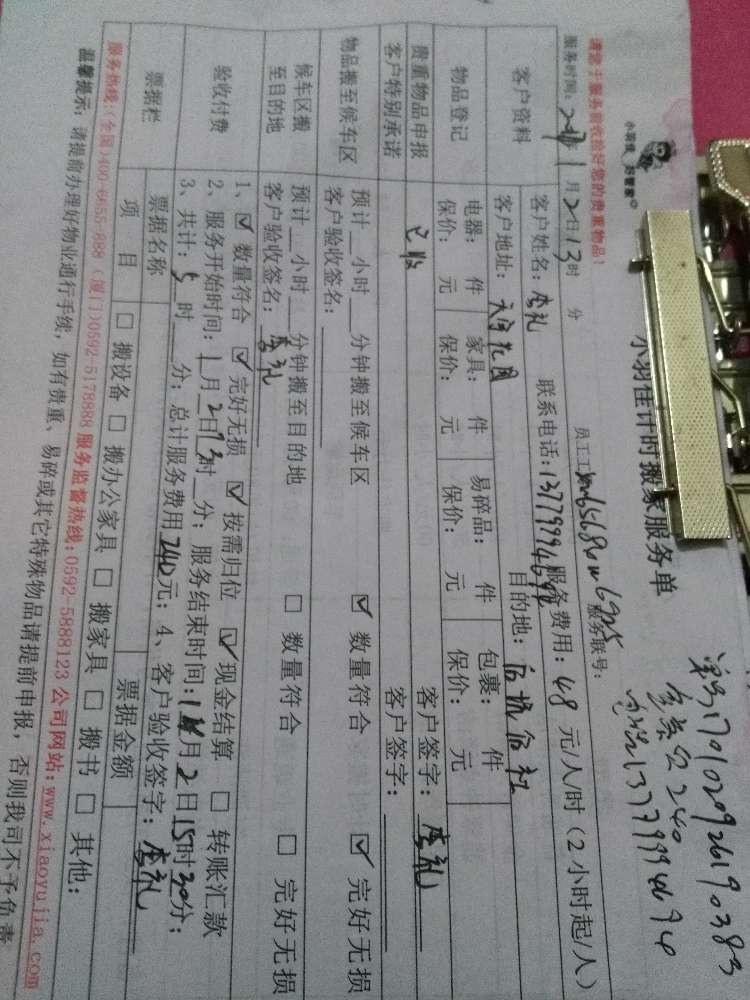 请您于服务前收拾好您的贵重物品!
小羽佳 好管家
小羽佳计时搬家服务单
单号1701020926190383
金额240
电话13779994694
服务时间: 1月2日13时 分 员工工号 服务联号:
客户资料
客户姓名: 李礼 联系电话: 13779994694 服务费用: 48 元/人/时 (2小时起/人)
客户地址: 天河花园 目的地:
物品登记
电器: 件 家具: 件 易碎品: 件 包裹: 件
保价: 元 保价: 元 保价: 元 保价: 元
贵重物品申报 已收 客户签字: 李礼
客户特别承诺 客户签字:
物品搬至候车区
预计__小时__分钟搬至候车区 ☑ 数量符合 ☑ 完好无损
客户验收签名:
候车区搬至目的地
预计__小时__分钟搬至目的地 □ 数量符合 □ 完好无损
客户验收签名: 李礼
验收付费
1、☑ 数量符合 ☑ 完好无损 ☑ 按需归位 ☑ 现金结算 □ 转账汇款
2、服务开始时间: 1月2日13时__分; 服务结束时间: 1月2日15时30分;
3、共计: 5时__分; 总计服务费用240元; 4、客户验收签字: 李礼
票据栏
票据名称 票据金额
项目 □ 搬设备 □ 搬办公家具 □ 搬家具 □ 搬书 □ 其他:
服务热线:(全国)400-6655-888 (厦门)0592-5178888 服务监督热线:0592-5888123 公司网站:www.xiaoyujia.com
温馨提示: 请提前办理好物业通行手续, 如有贵重、易碎或其它特殊物品请提前申报, 否则我司不予负责